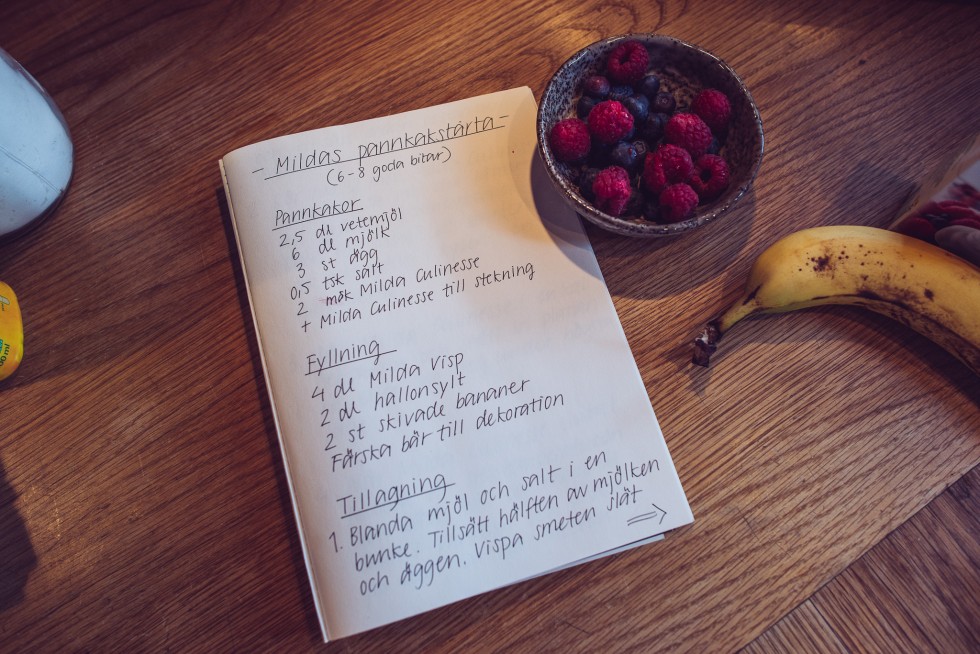 - Mildas pannkakstårta -
(6-8 goda bitar)
Pannkakor
2,5 dl vetemjöl
6 dl mjölk
3 st ägg
0,5 tsk salt
2 msk Milda Culinesse
+ Milda Culinesse till stekning
Fyllning
4 dl Milda Visp
2 dl hallonsylt
2 st skivade bananer
Färska bär till dekoration
Tillagning
1. Blanda mjöl och salt i en
bunke. Tillsätt hälften av mjölken
och äggen. Vispa smeten slät